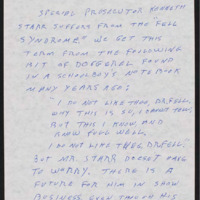 SPECIAL PROSECUTOR KENNETH
STARR SUFFERS FROM THE "FELL
SYNDROME." WE GET THIS
TERM FROM THE FOLLOWING
BIT OF DOGGEREL FOUND
IN A SCHOOLBOY'S NOTEBOOK
MANY YEARS AGO:
"I DO NOT LIKE THEE, DR. FELL.
WHY THIS IS SO, I CANNOT TELL,
BUT THIS I KNOW AND
KNOW FULL WELL,
I DO NOT LIKE THEE, DR. FELL.
BUT MR. STARR DOESN'T HAVE
TO WORRY. THERE IS A
FUTURE FOR HIM IN SHOW
BUSINESS EVEN THOUGH HIS